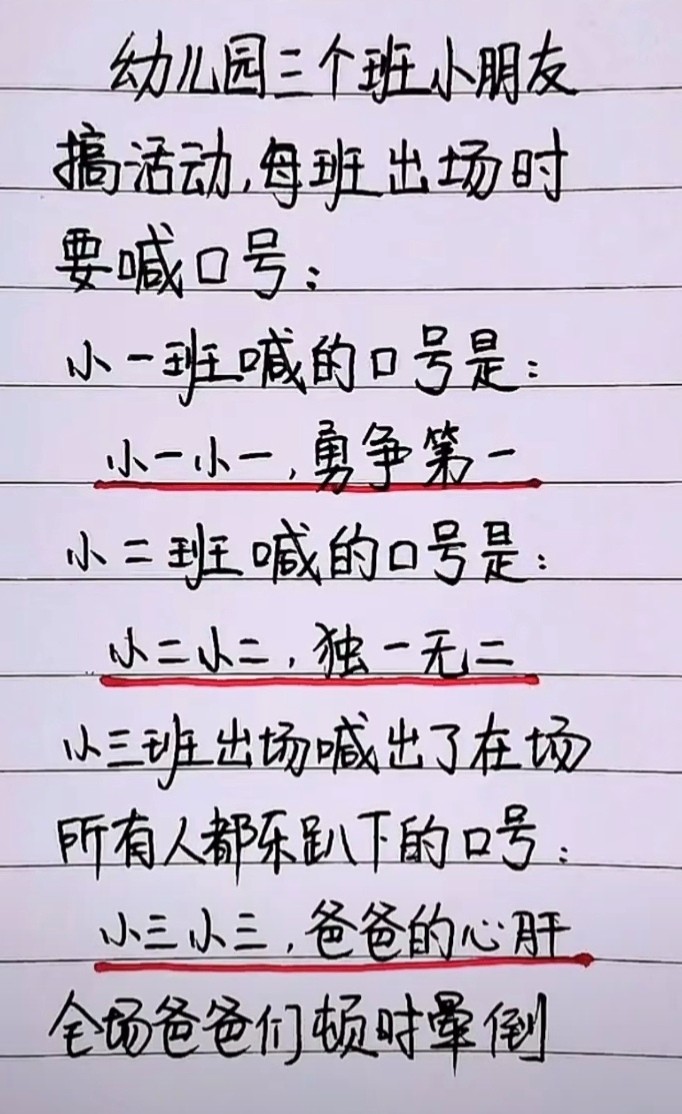 幼儿园三个班小朋友
搞活动,每班出场时
要喊口号:
小一班喊的口号是:
小一小一,勇争第一
小二班喊的口号是:
小二小二,独一无二
小三班出场喊出了在场
所有人都乐趴下的口号:
小三小三,爸爸的心肝
全场爸爸们顿时晕倒